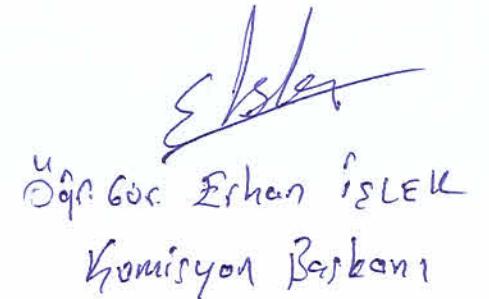 Öğr. Gör. Erhan İŞLEK
Komisyon Başkanı